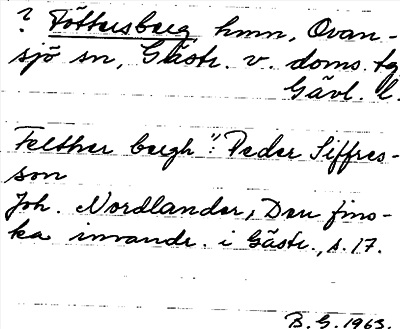 ? Töttersberg hmn, Ovan-
sjö sn, Gästr. v. doms. tg
Gävl. l.
Felther bergh": Peder Siffres-
son
Joh. Nordlander, Den fins-
ka invandr. i Gästr., s. 17.
B. G. 1963.